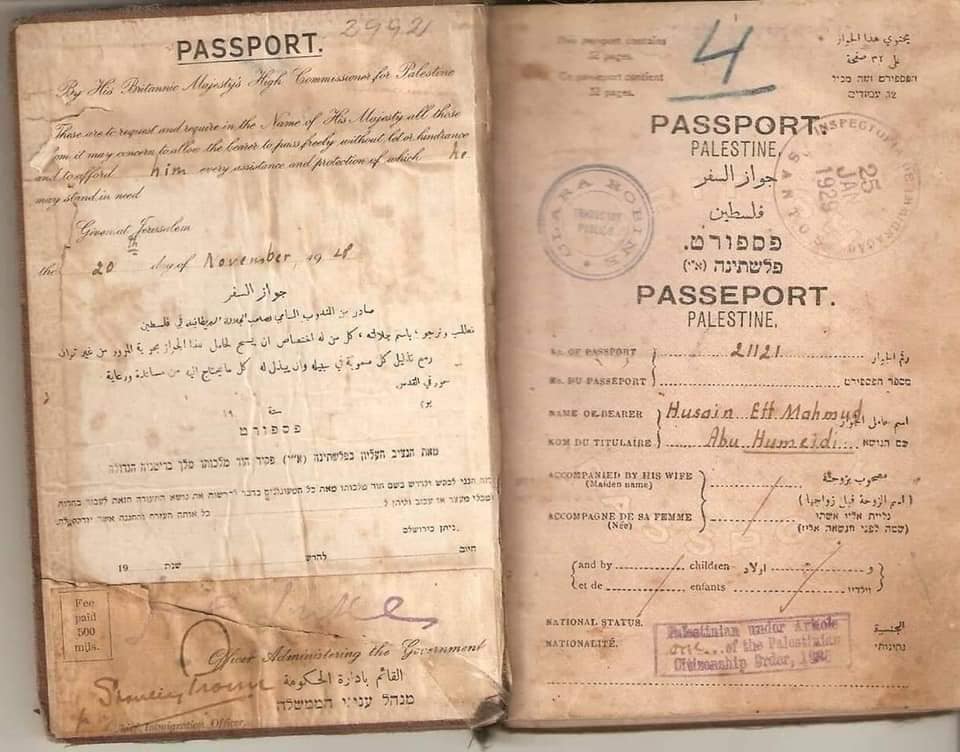 29921
PASSPORT.
By His Britannic Majesty's High Commissioner for Palestine
These are to request and require in the Name of His Majesty all those
whom it may concern to allow the bearer to pass freely without let or hindrance
and to afford him every assistance and protection of which he
may stand in need
Given at Jerusalem
the 20th day of November, 19 28
جواز السفر
صادر من المندوب السامي لصاحب الجلالة البريطانية في فلسطين
نطلب ونرجو، باسم جلالته، كل من له اختصاص ان يسمح لحامل هذا الجواز بحرية المرور من غير
مع تذليل كل صعوبة في سبيله وان يبذل له كل ما يحتاج اليه من مساعدة ورعاية
في القدس
سنة ١٩
פספורט
מאת הנציב העליון בפלשתינה (א״י) פקיד הוד מלכותו מלך בריטניה הגדולה
הנני לבקש ולדרוש בשם הוד מלכותו מאת כל
כל אותה העזרה וההגנה אשר
ניתן בירושלים.
היום לחדש שנת 19
Fee
paid
500
mils.
Officer Administering the Government
القائم بادارة الحكومة
מנהל עניני הממשלה
Chief Immigration Officer.
This passport contains
32 pages.
Ce passeport contient
32 pages.
4
يحتوي هذا الجواز
على ٣٢ صفحة
הפספורט הזה מכיל
32 עמודים
PASSPORT.
PALESTINE.
جواز السفر
فلسطين
פספורט.
פלשתינה (א״י)
PASSEPORT.
PALESTINE.
CLARA ROBINS
PUBLIC
INSPECTORIA
SANTOS
25 JAN 1929
No. OF PASSPORT 21121 رقم الجواز
No. DU PASSEPORT מספר הפספורט
NAME OF BEARER Husain Eff Mahmud اسم حامل الجواز
NOM DU TITULAIRE Abu Humeidi שם הנושא
ACCOMPANIED BY HIS WIFE مصحوب بزوجته
(Maiden name) (اسم الزوجة قبل زواجها)
ACCOMPAGNE DE SA FEMME נלוית אליו אשתו
(Née) (שמה לפני הנשאה אליו)
and by children اولاد و
et de enfants וילדיו
NATIONAL STATUS. الجنسية
NATIONALITÉ. נתינותו
Palestinian under Article
one of the Palestinian
Citizenship Order, 1925